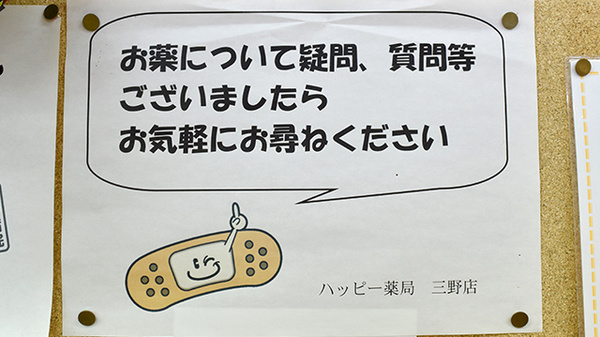 お薬について疑問、質問等
ございましたら
お気軽にお尋ねください
ハッピー薬局　三野店